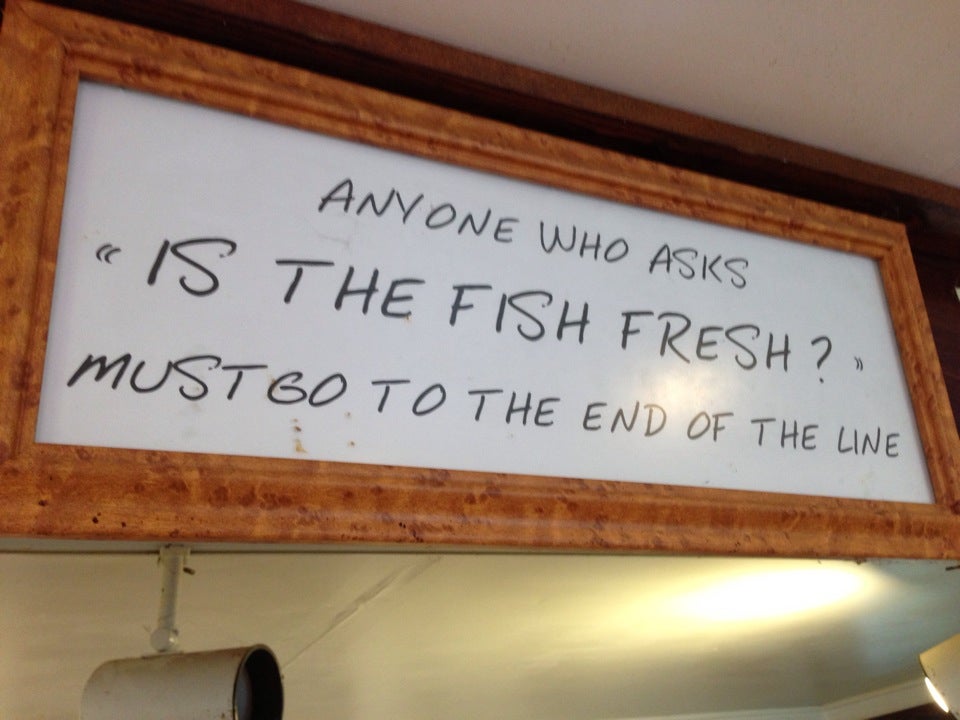 ANYONE WHO ASKS
« IS THE FISH FRESH? »
MUST GO TO THE END OF THE LINE